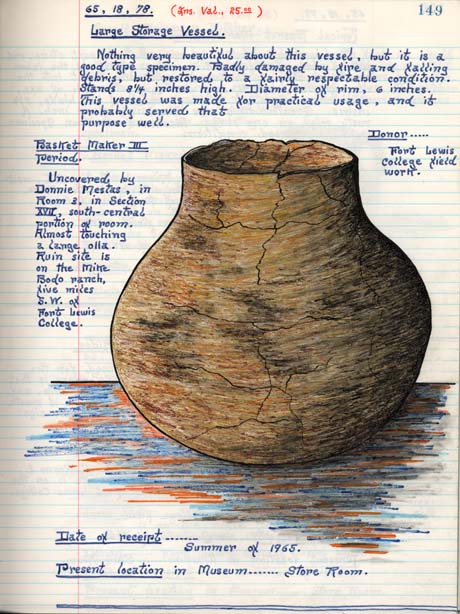 65, 18, 78. (Ins. Val., 25.00)
149
Large Storage Vessel.
Nothing very beautiful about this vessel, but it is a
good type specimen. Badly damaged by fire and falling
debris, but restored, to a fairly respectable condition.
Stands 8 1/4 inches high. Diameter of rim, 6 inches.
This vessel was made for practical usage, and it
probably served that
purpose well.
Donor.....
Fort Lewis
College field
work.
Basket Maker III
Period.
Uncovered by
Donnie Mestas, in
Room 2, in Section
XVII, south-central
portion of room.
Almost touching
a large olla.
Ruin site is
on the Mike
Bodo ranch,
five miles
S.W. of
Fort Lewis
College.
Date of receipt.......
Summer of 1965.
Present location in Museum....... Store Room.